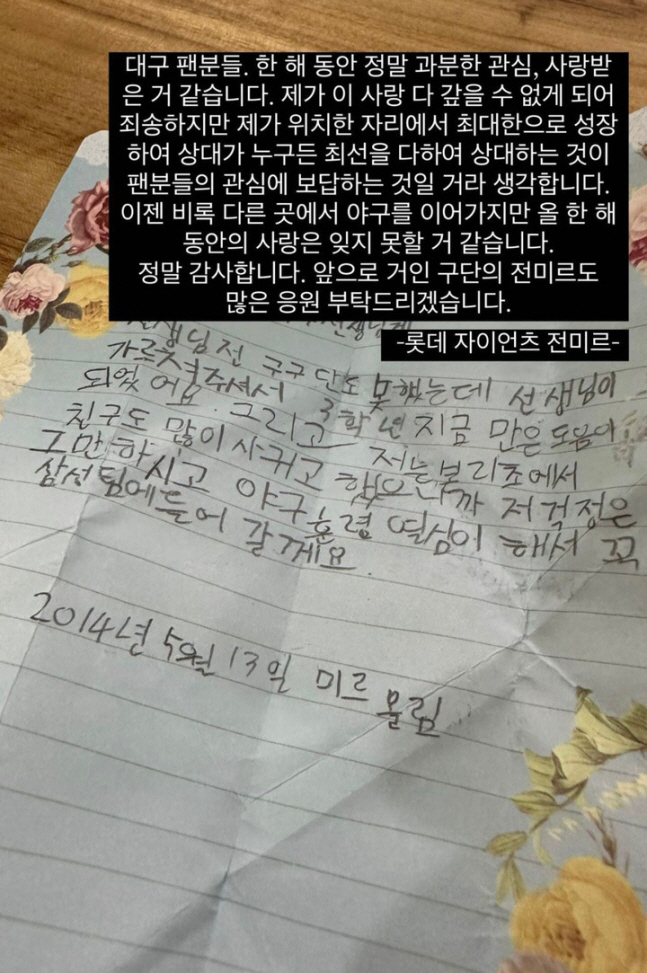 대구 팬분들. 한 해 동안 정말 과분한 관심, 사랑받
은 거 같습니다. 제가 이 사랑 다 갚을 수 없게 되어
죄송하지만 제가 위치한 자리에서 최대한으로 성장
하여 상대가 누구든 최선을 다하여 상대하는 것이
팬분들의 관심에 보답하는 것일 거라 생각합니다.
이젠 비록 다른 곳에서 야구를 이어가지만 올 한 해
동안의 사랑은 잊지 못할 거 같습니다.
정말 감사합니다. 앞으로 거인 구단의 전미르도
많은 응원 부탁드리겠습니다.
-롯데 자이언츠 전미르-
선생님전 구구단도 못했는데 선생님이
가르쳐주셔서 3학년 지금 만은 도움이
되었어요. 그리고 저는 본리초에서
친구도 많이 사귀고 했으니까 저 걱정은
그만하시고 야구 훈령 열심이 해서 꼭
삼성팀에 들어 갈게요.
2014년 5월 13일 미르 올림